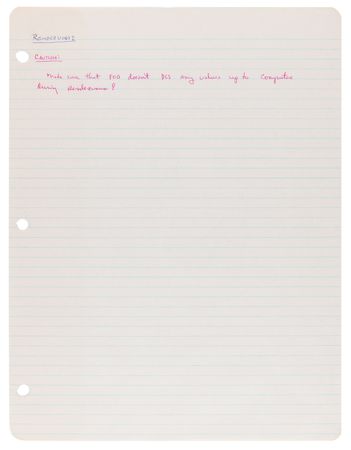 RENDEZVOUS
CAUTION!
Make sure that FOD doesn't DCS any values up to Computer
During rendezvous!